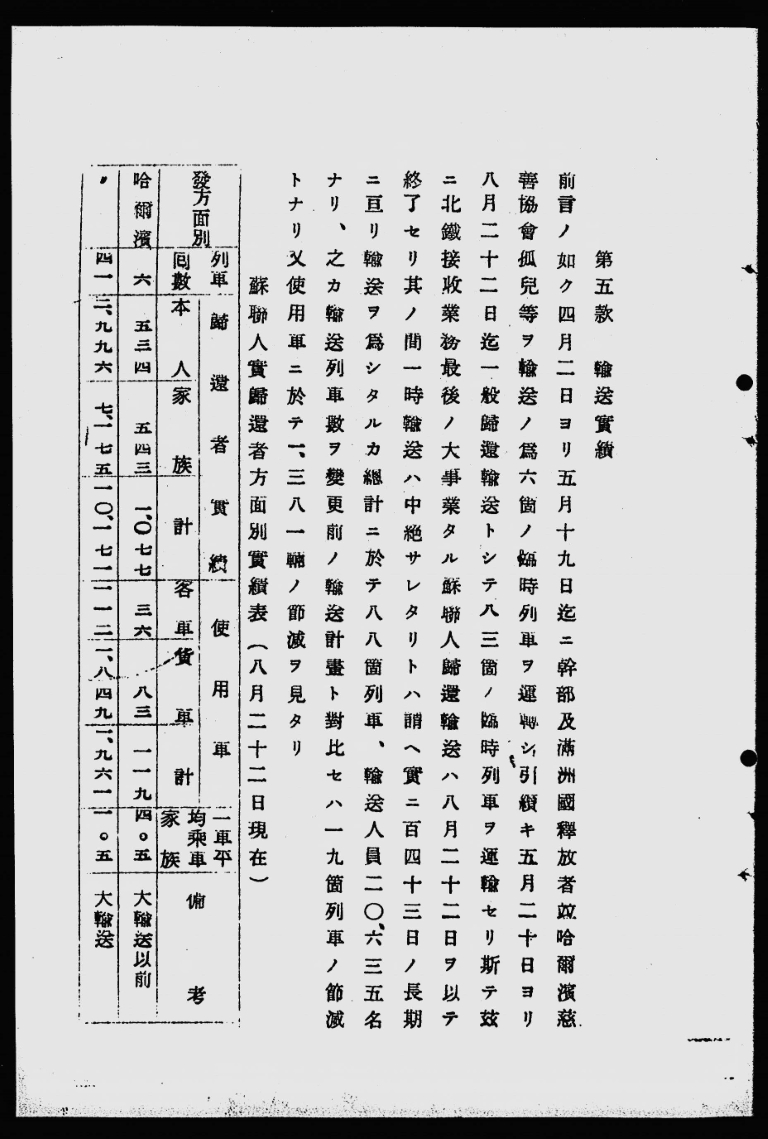 第五款　輸送實績
前言ノ如ク四月二日ヨリ五月十九日迄ニ幹部及滿洲國釋放者竝哈爾濱慈
善協會孤兒等ヲ輸送ノ爲六箇ノ臨時列車ヲ運轉シ引續キ五月二十日ヨリ
八月二十二日迄一般歸還輸送トシテ八三箇ノ臨時列車ヲ運輸セリ斯テ玆
ニ北鐵接收業務最後ノ大事業タル蘇聯人歸還輸送ハ八月二十二日ヲ以テ
終了セリ其ノ間一時輸送ハ中絶サレタリトハ謂ヘ實ニ百四十三日ノ長期
ニ亘リ輸送ヲ爲シタルカ總計ニ於テ八八箇列車、輸送人員二〇、六三五名
ナリ、之カ輸送列車數ヲ變更前ノ輸送計畫ト對比セハ一九箇列車ノ節減
トナリ又使用車ニ於テ一、三八一輛ノ節減ヲ見タリ
蘇聯人實歸還者方面別實績表（八月二十二日現在）
發方面別　列車回數　歸還者實績　本人　家族　計　使用車　客車　貨車　計　一車平均乘車家族　備考
哈爾濱　六　五三四　五四三　一、〇七七　三六　八三　一一九　四。五　大輸送以前
〃　四一　二、九九六　七、一七五　一〇、一七一　一一二　一、八四九　一、九六一　一。五　大輸送